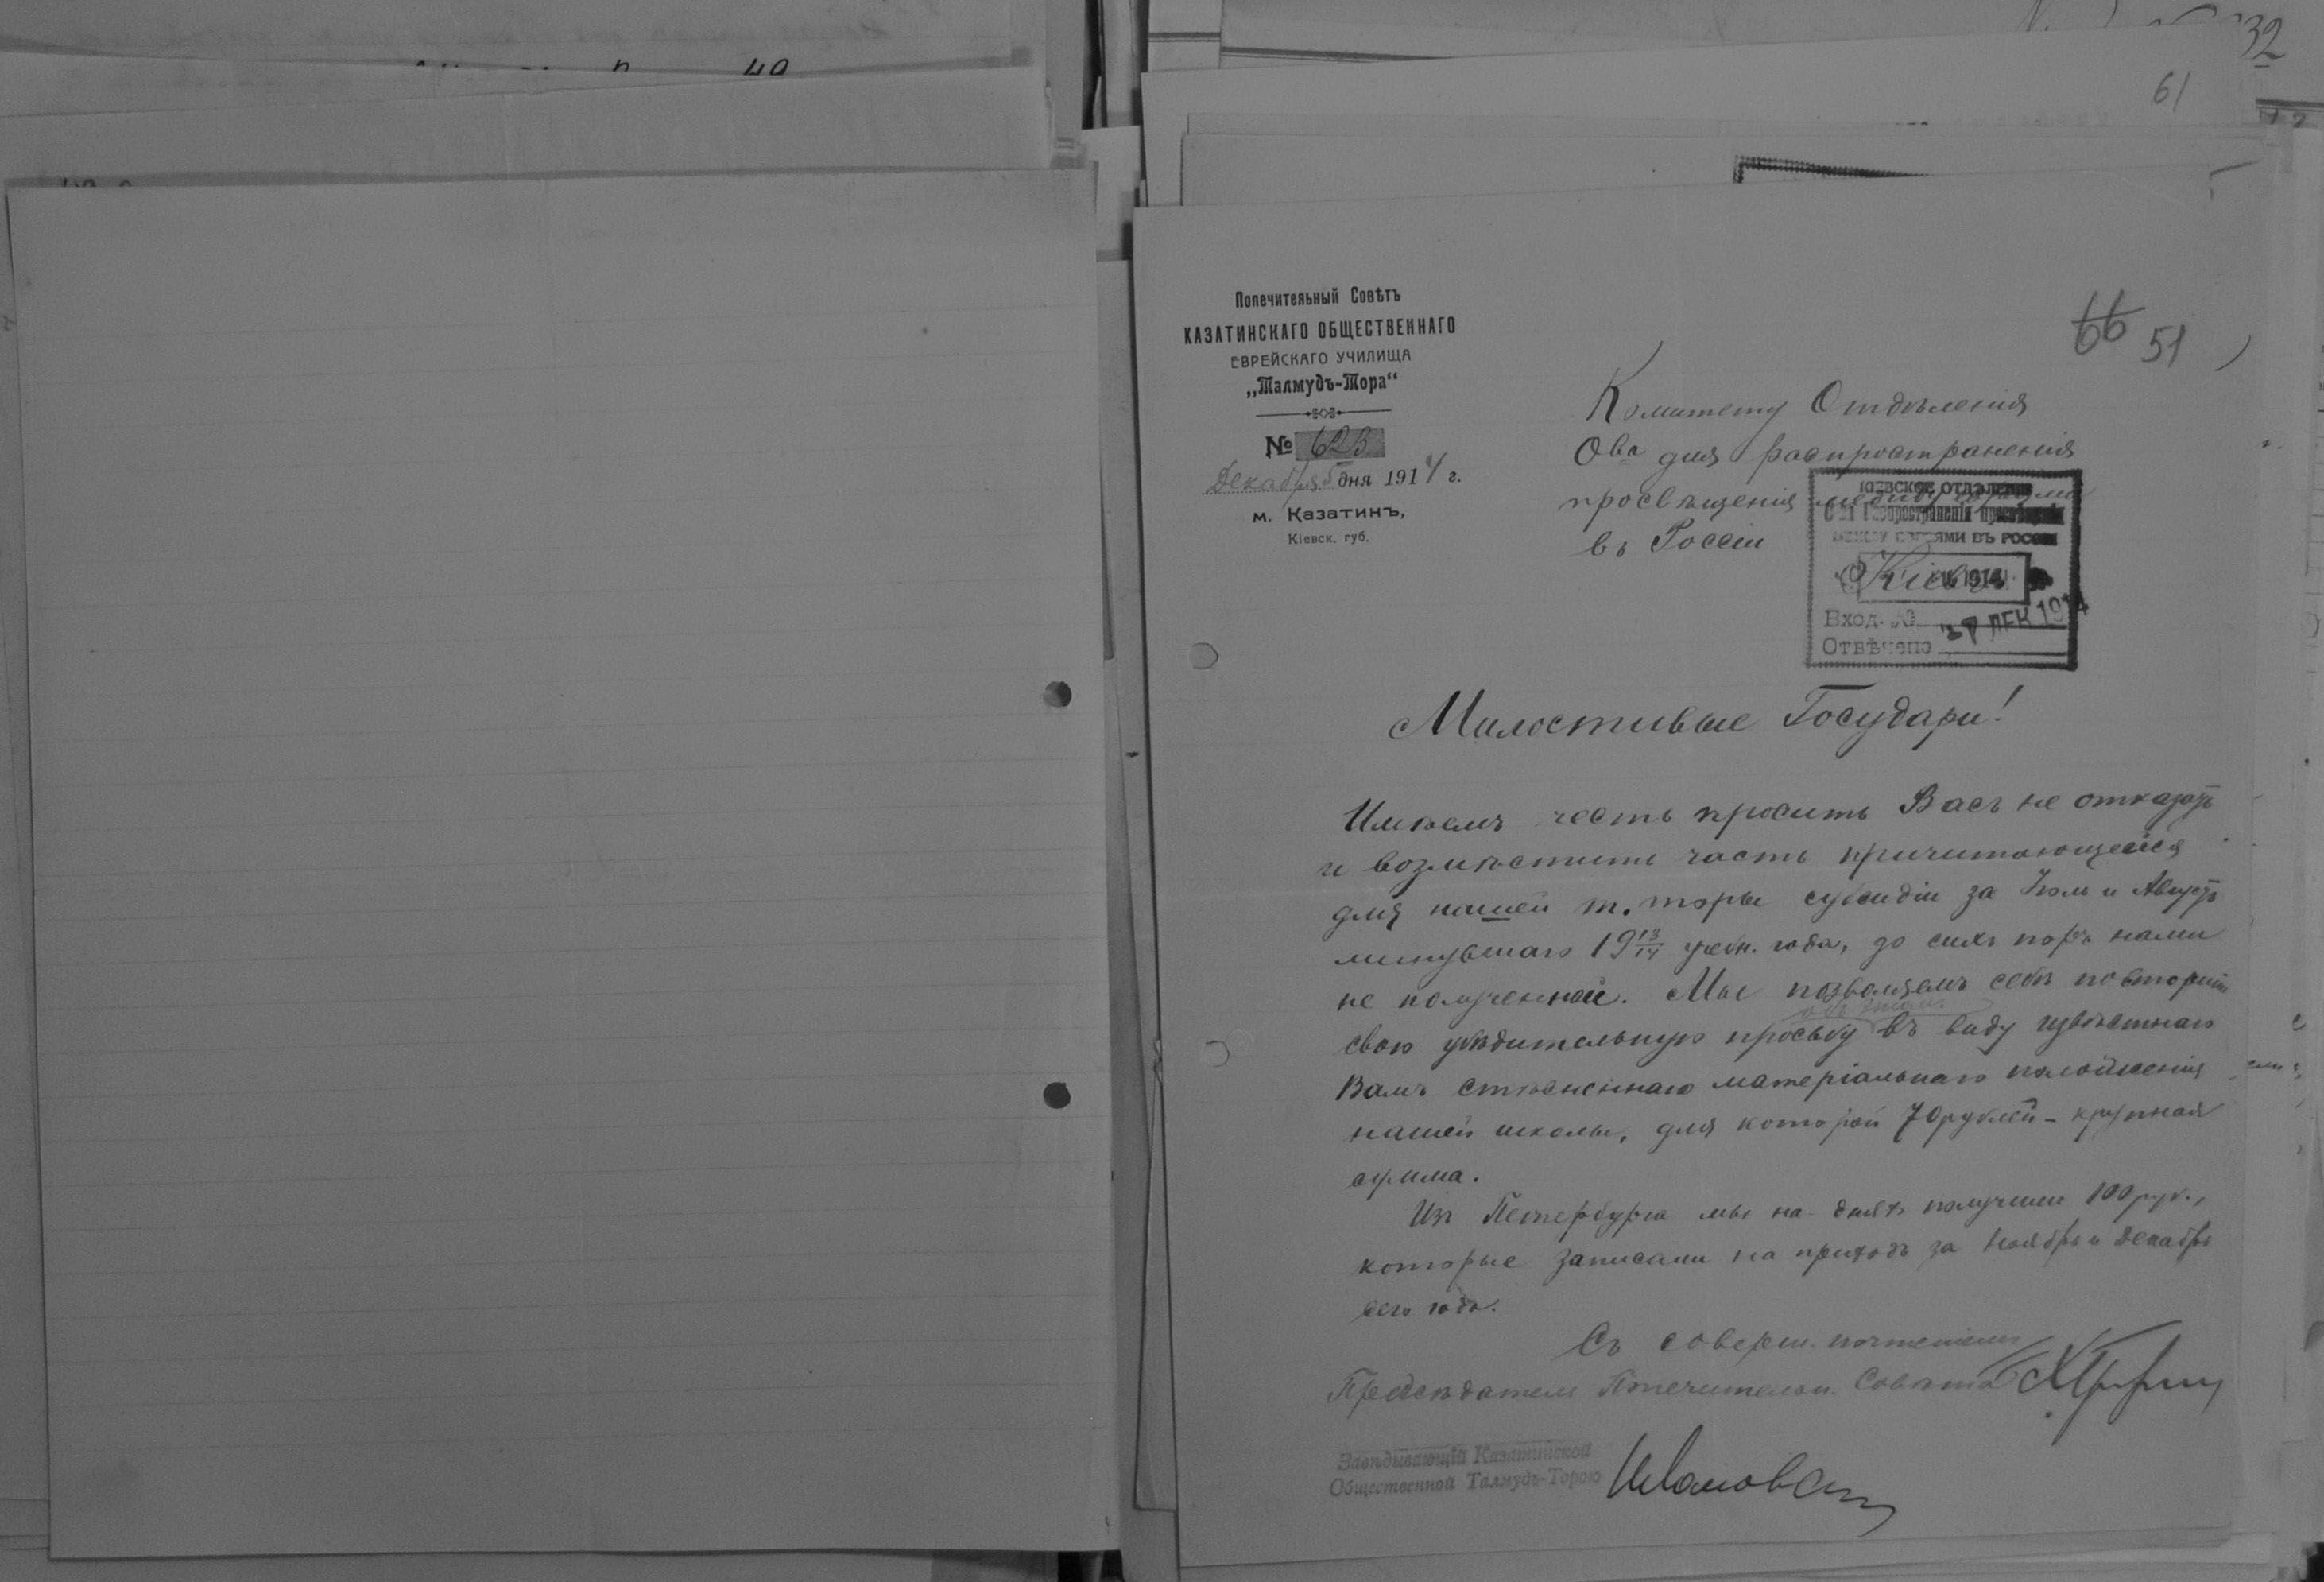 32
61
66 51
Попечительный Совѣтъ
КАЗАТИНСКАГО ОБЩЕСТВЕННАГО
ЕВРЕЙСКАГО УЧИЛИЩА
„Талмудъ-Тора“
№ 623
Декабря 5 дня 1914 г.
м. Казатинъ,
Кіевск. губ.
Комитету Отдѣленія
О-ва для распространенія
просвѣщенія между евреями
въ Россіи
Кіевъ
КІЕВСКОЕ ОТДѢЛЕНІЕ
О-ва Распространенія просвѣщенія
МЕЖДУ ЕВРЕЯМИ ВЪ РОССІИ
1914
Вход. №
Отвѣчено ДЕК 1914
Милостивые Государи!
Имѣемъ честь просить Васъ не отказать
и возмѣстить часть причитающейся
для нашей т. торы субсидіи за Іюль и Августъ
минувшаго 19 13/14 учебн. года, до сихъ поръ нами
не полученной. Мы позволяемъ себѣ повторить
свою убѣдительную просьбу въ виду извѣстнаго
Вамъ стѣсненнаго матеріальнаго положенія
нашей школы, для которой 70 рублей - крупная
сумма.
Изъ Петербурга мы на-дняхъ получили 100 руб.,
которые записали на приходъ за Ноябрь и Декабрь
сего года.
Съ соверш. почтеніемъ
Предсѣдатель Попечительн. Совѣта
Завѣдывающій Казатинской
Общественной Талмудъ-Торою